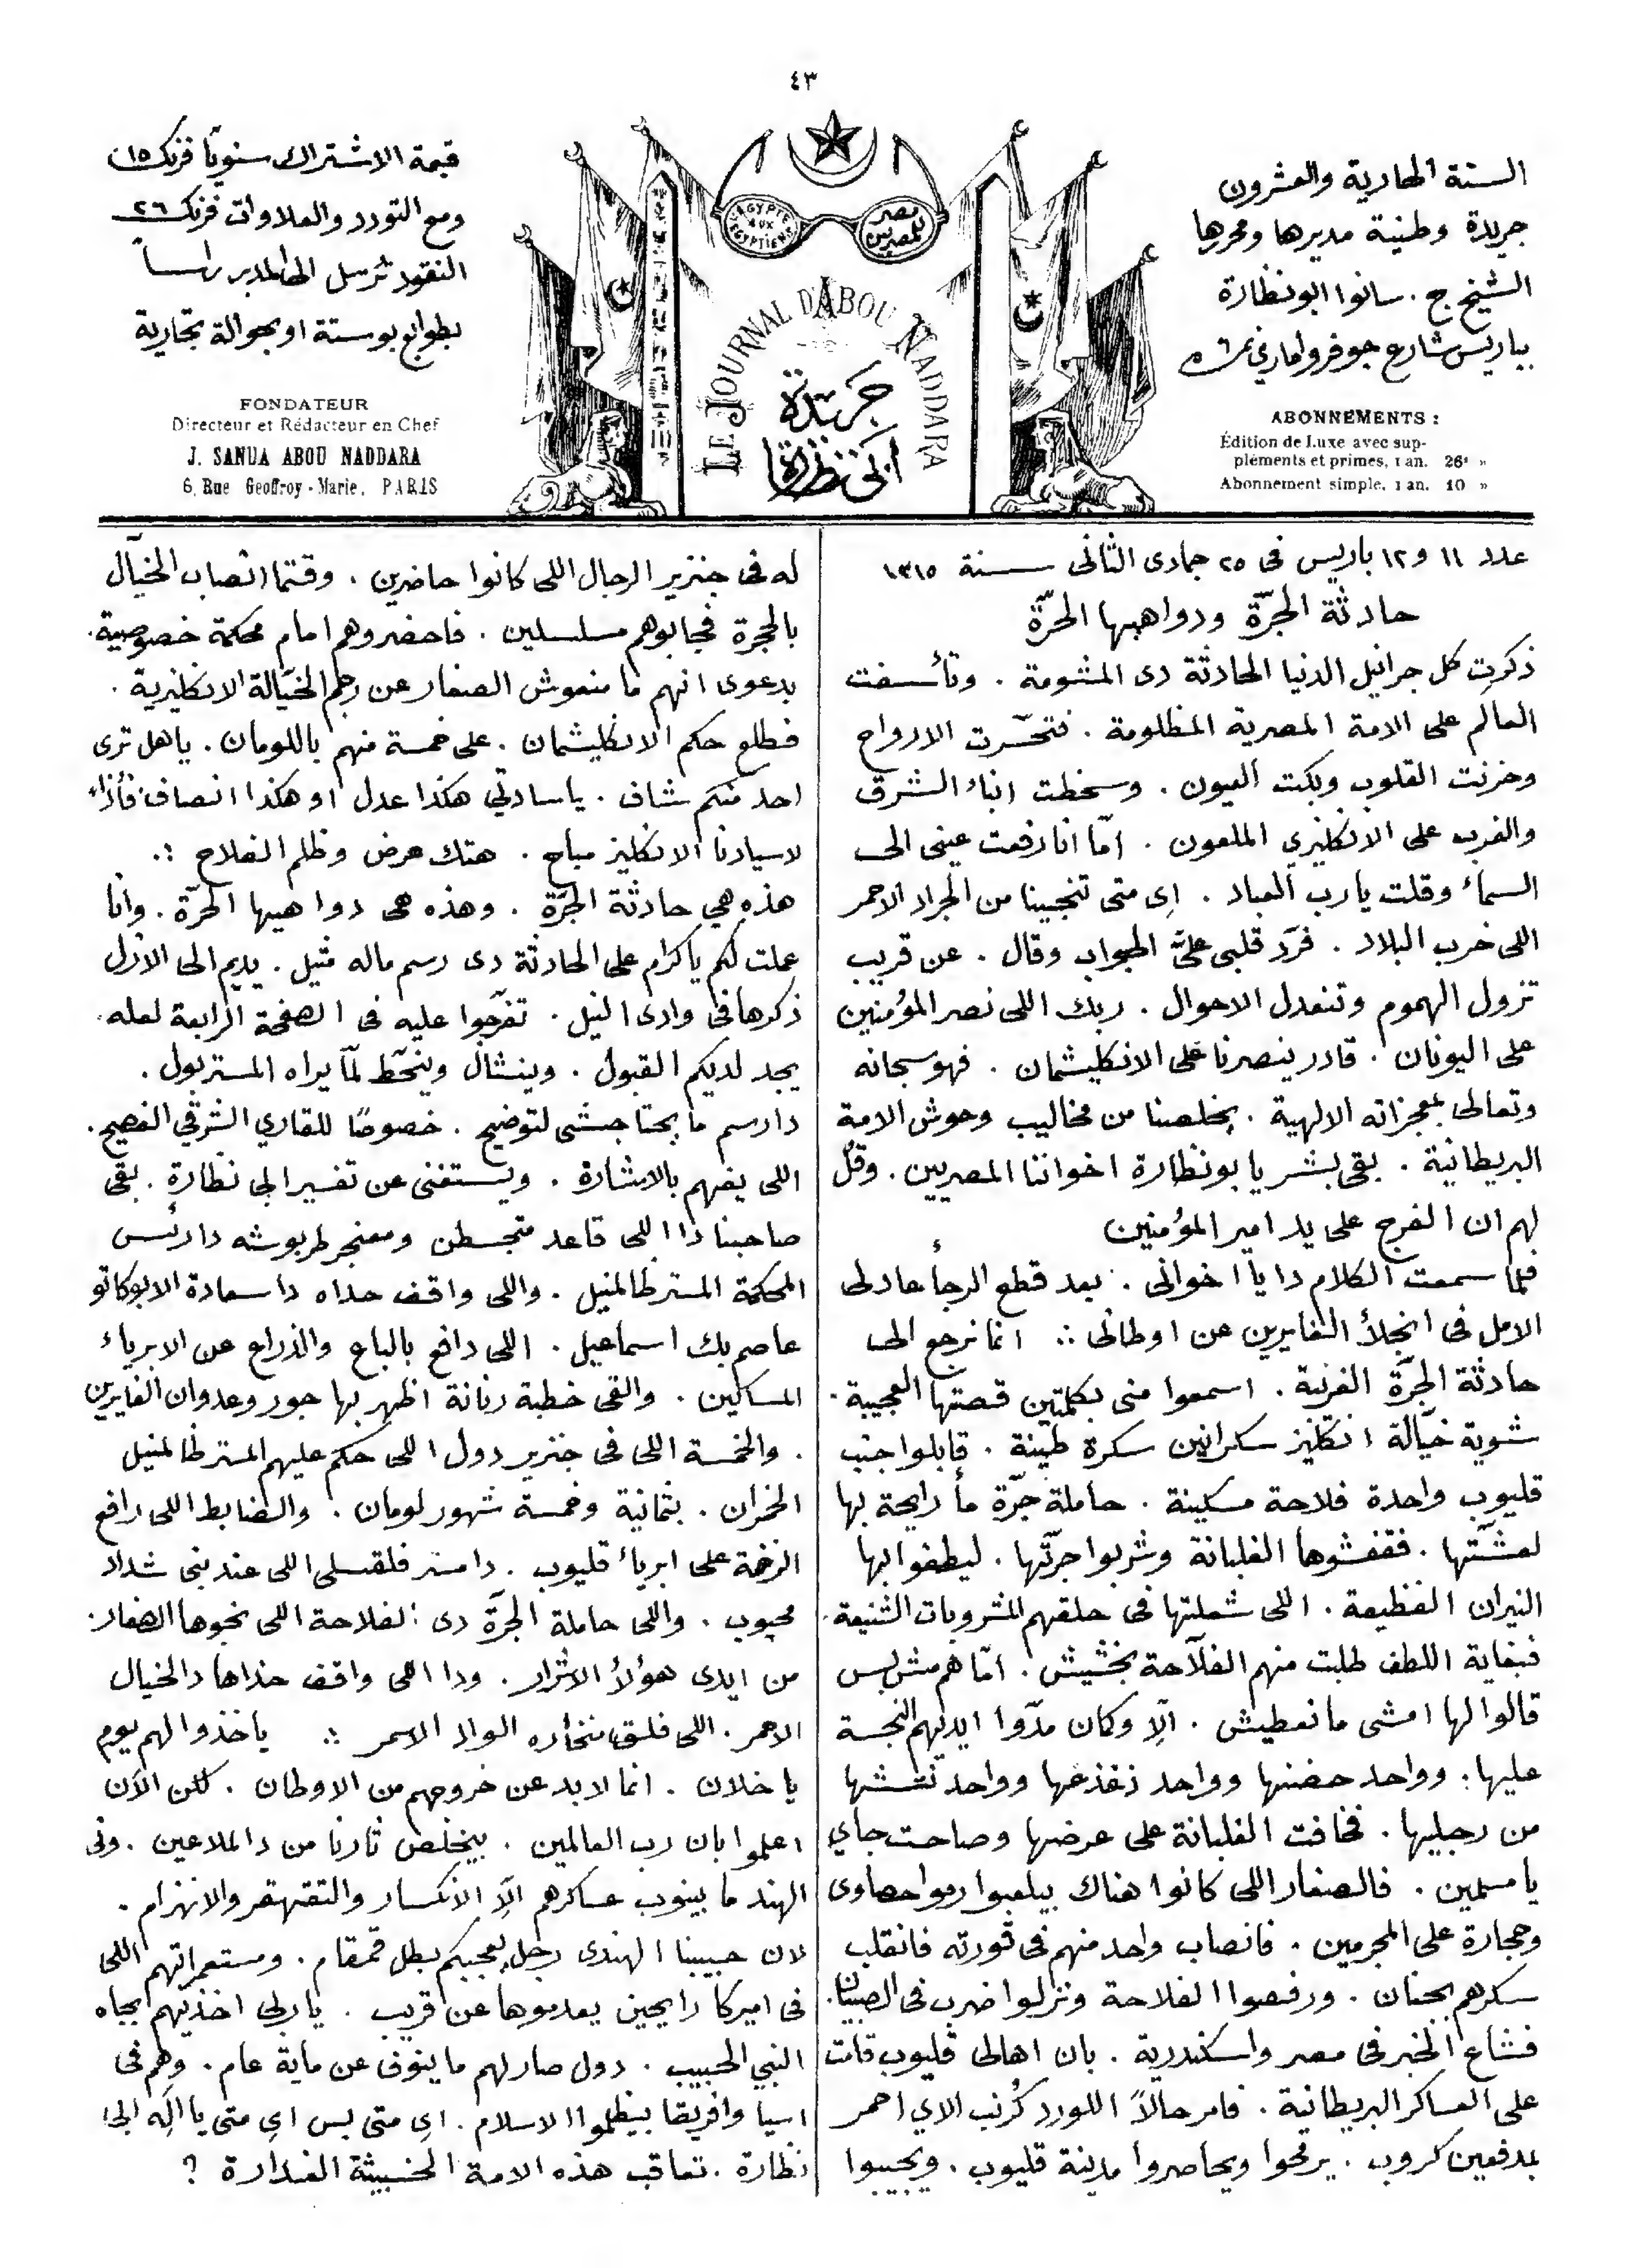 ٤٣
السنة الحادية والعشرون
جريدة وطنية مديرها ومحررها
الشيخ ج. سانوا ابو نظارة
بباريس شارع جوفروا ماري نمرة
ABONNEMENTS :
Édition de Luxe avec sup-
pléments et primes, 1 an. 26 »
Abonnement simple, 1 an. 10 »
L'EGYPTE AUX EGYPTIENS
مصر للمصريين
LE JOURNAL D'ABOU NADDARA
جريدة
ابى نظارة
قيمة الاشتراك سنويًا فرنك ١٥
ومع التورد والعلاوات فرنك ٢٦
النقود ترسل الى المدير راسًا
بطوابع بوستة او بحوالة تجارية
FONDATEUR
Directeur et Rédacteur en Chef
J. SANUA ABOU NADDARA
6, Rue Geoffroy-Marie, PARIS
عدد ١١ و١٢ باريس فى ٢٥ جمادى الثانى سنة ١٣١٥
حادثة الجرّة ودواهيها الحرّة
ذكرت كل جرانيل الدنيا الحادثة دى المشومة . وتأسفت
العالم على الامة المصرية المظلومة . فتحسّرت الارواح
وحزنت القلوب وبكت العيون . وسخطت ابناء الشرق
والغرب على الانكليزي الملعون . امّا انا رفعت عينى الى
السماء وقلت يا رب العباد . اى متى تنجينا من الجراد الاحمر
اللى خرب البلاد . فردّ قلبى علىّ الجواب وقال . عن قريب
تزول الهموم وتنعدل الاحوال . ربك اللى نصر المؤمنين
على اليونان . قادر ينصرنا على الانكليشمان . فهو سبحانه
وتعالى بمعجزاته الالهية . يخلصنا من مخاليب وحوش الامة
البريطانية . بقى بشر يا بو نظارة اخواننا المصريين . وقل
لهم ان الفرج على يد امير المؤمنين
فلما سمعت الكلام دا يا اخوانى . بعد قطع الرجأ عاد لى
الامل فى انجلأ الغايرين عن اوطانى ؞ انما نرجع الى
حادثة الجرّة الغريبة . اسمعوا منى بكلمتين قصتها العجيبة .
شوية خيّالة انكليز سكرانين سكرة طينة . قابلوا جنب
قليوب واحدة فلاحة مسكينة . حاملة جرّة مأ رايحة بها
لعشّتها . فقفشوها الغلبانة وشربوا جرّتها . ليطفوا بها
النيران الفظيعة . اللى شعلتها فى حلقهم المشروبات الشنيعة .
فبغاية اللطف طلبت منهم الفلّاحة بخشيش . امّا هم مش بس
قالوا لها امشى ما نعطيش . الّا وكمان مدّوا ايديهم النجسة
عليها : وواحد حضنها وواحد زغزغها وواحد
من رجليها . فخافت الغلبانة على عرضها وصاحت جاي
يا مسلمين . فالصغار اللى كانوا هناك بيلعبوا رموا حصاوى
وحجارة على المجرمين . فانصاب واحد منهم فى قورته فانقلب
سكرهم بجنان . ورفصوا الفلاحة ونزلوا ضرب فى الصبيان .
فشاع الخبر فى مصر واسكندرية . بان اهالى قليوب قامت
على العساكر البريطانية . فامر حالاً اللورد كُرنب الاي احمر
بمدفعين كروب . يرمحوا ويحاصروا مدينة قليوب . ويجيبوا
له فى جنزير الرجال اللى كانوا حاضرين . وقتما انصاب الخيّال
بالحجرة فجابوهم مسلسلين . فاحضروهم امام محكمة خصوصية .
بدعوى انهم ما منعوش الصغار عن رجم الخيّالة الانكليزية .
فطلع حكم الانكليشمان . على خمسة منهم باللومان . يا هل ترى
احد منكم شاف . يا سادتي هكذا عدل او هكذا انصاف
لاسيادنا الانكليز مباح . هتك عرض وظلم الفلاح ؞
هذه هي حادثة الجرّة . وهذه هى دواهيها الحرّة . وانا
عملت لكم يا كرام على الحادثة دى رسم ماله مثيل . يديم الى الازل
ذكرها فى وادى النيل . تفرّجوا عليه فى الصفحة الرابعة لعله .
يجد لديكم القبول . وينشال ويتحّط لمّا يراه المستر بول .
دا رسم ما يحتاجشى لتوضيح . خصوصًا للقاري الشرقي الفصيح .
اللى يفهم بالاشارة . ويستغنى عن تفسير ابى نظارة . بقى
صاحبنا دا اللى قاعد متجسطن ومعنجر طربوشه دا رئيس
المحكمة المستر ظالمنيل . واللى واقف حداه دا سعادة الابوكاتو
عاصم بك اسماعيل . اللى دافع بالباع والذراع عن الابرياء
المساكين . والقى خطبة رنانة اظهر بها جور وعدوان الغايرين
. والخمسة اللى فى جنزير دول اللى حكم عليهم المستر ظالمنيل
الخمران . بثمانية وخمسة شهور لومان . والضابط اللى رافع
على ابرياء قليوب . دا مستر فلقسلى اللى عند بنى شداد
محبوب . واللى حاملة الجرّة دى الفلاحة اللى نجوها الصغار
من ايدى هؤلأ الاشرار . ودا اهى واقف حذاها دا الخيال
الاحمر . اللى فلق منخاره الواد الاسمر ؞ ياخذوا لهم يوم
يا خلان . انما لابد عن خروجهم من الاوطان . لكن الآن
اعلموا بان رب العالمين . بيخلص تارنا من دا الملاعين . وفى
الهند ما بينوب عساكرهم الّا الانكسار والتقهقر والانهزام .
لان حبيبنا الهندى رجل يعجبكم بطل قمقام . ومستعمراتهم اللى
فى اميركا رايحين يعدموها عن قريب . يا ربى اخذيهم بجاه
النبي الحبيب . دول صار لهم ما ينوف عن ماية عام . وهم فى
اسيا وافريقا بيظلموا الاسلام . اى متى بس اى متى يا اله ابى
نظارة . تعاقب هذه الامة الخبيثة الغدارة ؟